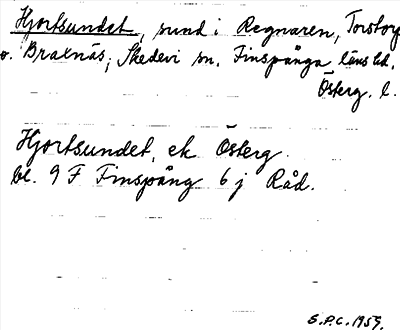 Hjortsundet, sund i Regnaren, Torstorp
o. Braxnäs, Skedevi sn. Finspånga läns hd.
Österg. l.
Hjortsundet, ek Österg.
bl. 9 F Finspång 6 j Råd.
S.P.C. 1959.